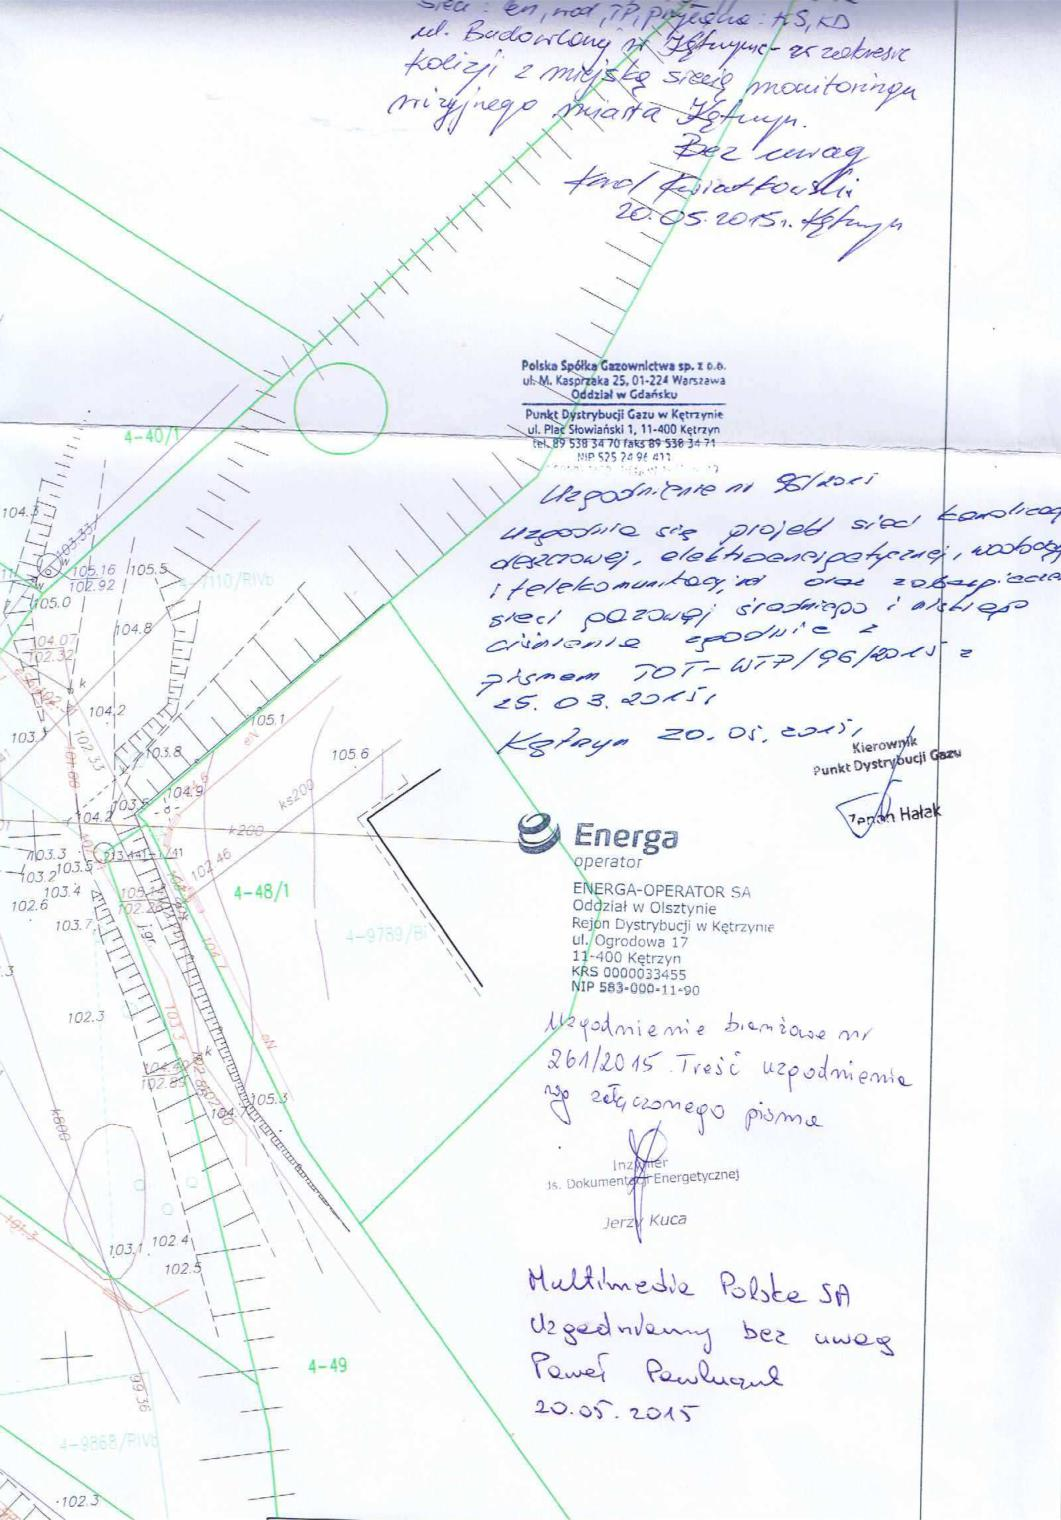 sieci: en, wod, TP, przyłącza: KS, KD
ul. Budowlanej w Kętrzynie - w zakresie
kolizji z miejską siecią monitoringu
wizyjnego miasta Kętrzyn.
Bez uwag
Karol Kwiatkowski
20.05.2015r. Kętrzyn
Polska Spółka Gazownictwa sp. z o.o.
ul. M. Kasprzaka 25, 01-224 Warszawa
Oddział w Gdańsku
Punkt Dystrybucji Gazu w Kętrzynie
ul. Plac Słowiański 1, 11-400 Kętrzyn
tel. 89 538 34 70 faks 89 538 34 71
NIP 525 24 96 411
Uzgodnienie nr 96/2015
Uzgodnia się projekt sieci kanalizac
deszczowej, elektroenergetycznej, wodociąg
i telekomunikacyjnej oraz zabezpieczen
sieci gazowej średniego i niskiego
ciśnienia zgodnie z
pismem TOT-WTP/96/2015 z
25.03.2015r
Kętrzyn 20.05.2015r
Kierownik
Punkt Dystrybucji Gazu
Zenon Hałak
Energa
operator
ENERGA-OPERATOR SA
Oddział w Olsztynie
Rejon Dystrybucji w Kętrzynie
ul. Ogrodowa 17
11-400 Kętrzyn
KRS 0000033455
NIP 583-000-11-90
Uzgodnienie branżowe nr
261/2015. Treść uzgodnienia
wg załączonego pisma
Inżynier
ds. Dokumentacji Energetycznej
Jerzy Kuca
Multimedia Polska SA
Uzgadniamy bez uwag
Paweł
20.05.2015
4-40/1
104.3
103.33
105.16
102.92
105.5
4-7110/RIVb
105.0
104.8
104.07
102.32
k
104.2
103.
102.33
101.88
103.8
105.1
eN
105.6
104.9
104.2
ks200
k200
102.46
103.3
103.5
103.2
103.4
102.6
103.7
4-48/1
4-9789/Bi
j.gr.
104.7
102.3
103.3
eN
k
102.89
105.3
104.7
k800
101.3
103.1
102.4
102.5
4-49
99.36
4-9868/RIVb
102.3